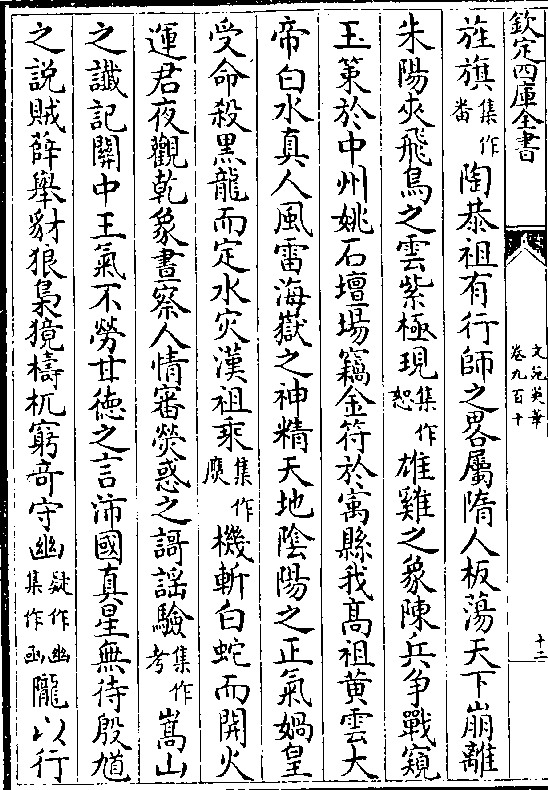 欽定四庫全書
文苑英華
卷九百十
十二
旌旗集作畨陶恭祖有行師之畧屬隋人板蕩天下崩離
朱陽夾飛鳥之雲紫極現集作恕雄雞之象陳兵爭戰窺
玉策於中州姚石壇場竊金符於寓縣我髙祖黄雲大
帝白水真人風雷海嶽之神精天地陰陽之正氣媧皇
受命殺黒龍而定水灾漢祖乘集作膺機斬白蛇而開火
運君夜觀乾象晝察人情審熒惑之謌謡驗集作考嵩山
之讖記關中王氣不勞甘德之言沛國真星無待殷馗
之説賊薛舉豺狼梟獍檮杌窮竒守幽疑作豳集作凾隴以行